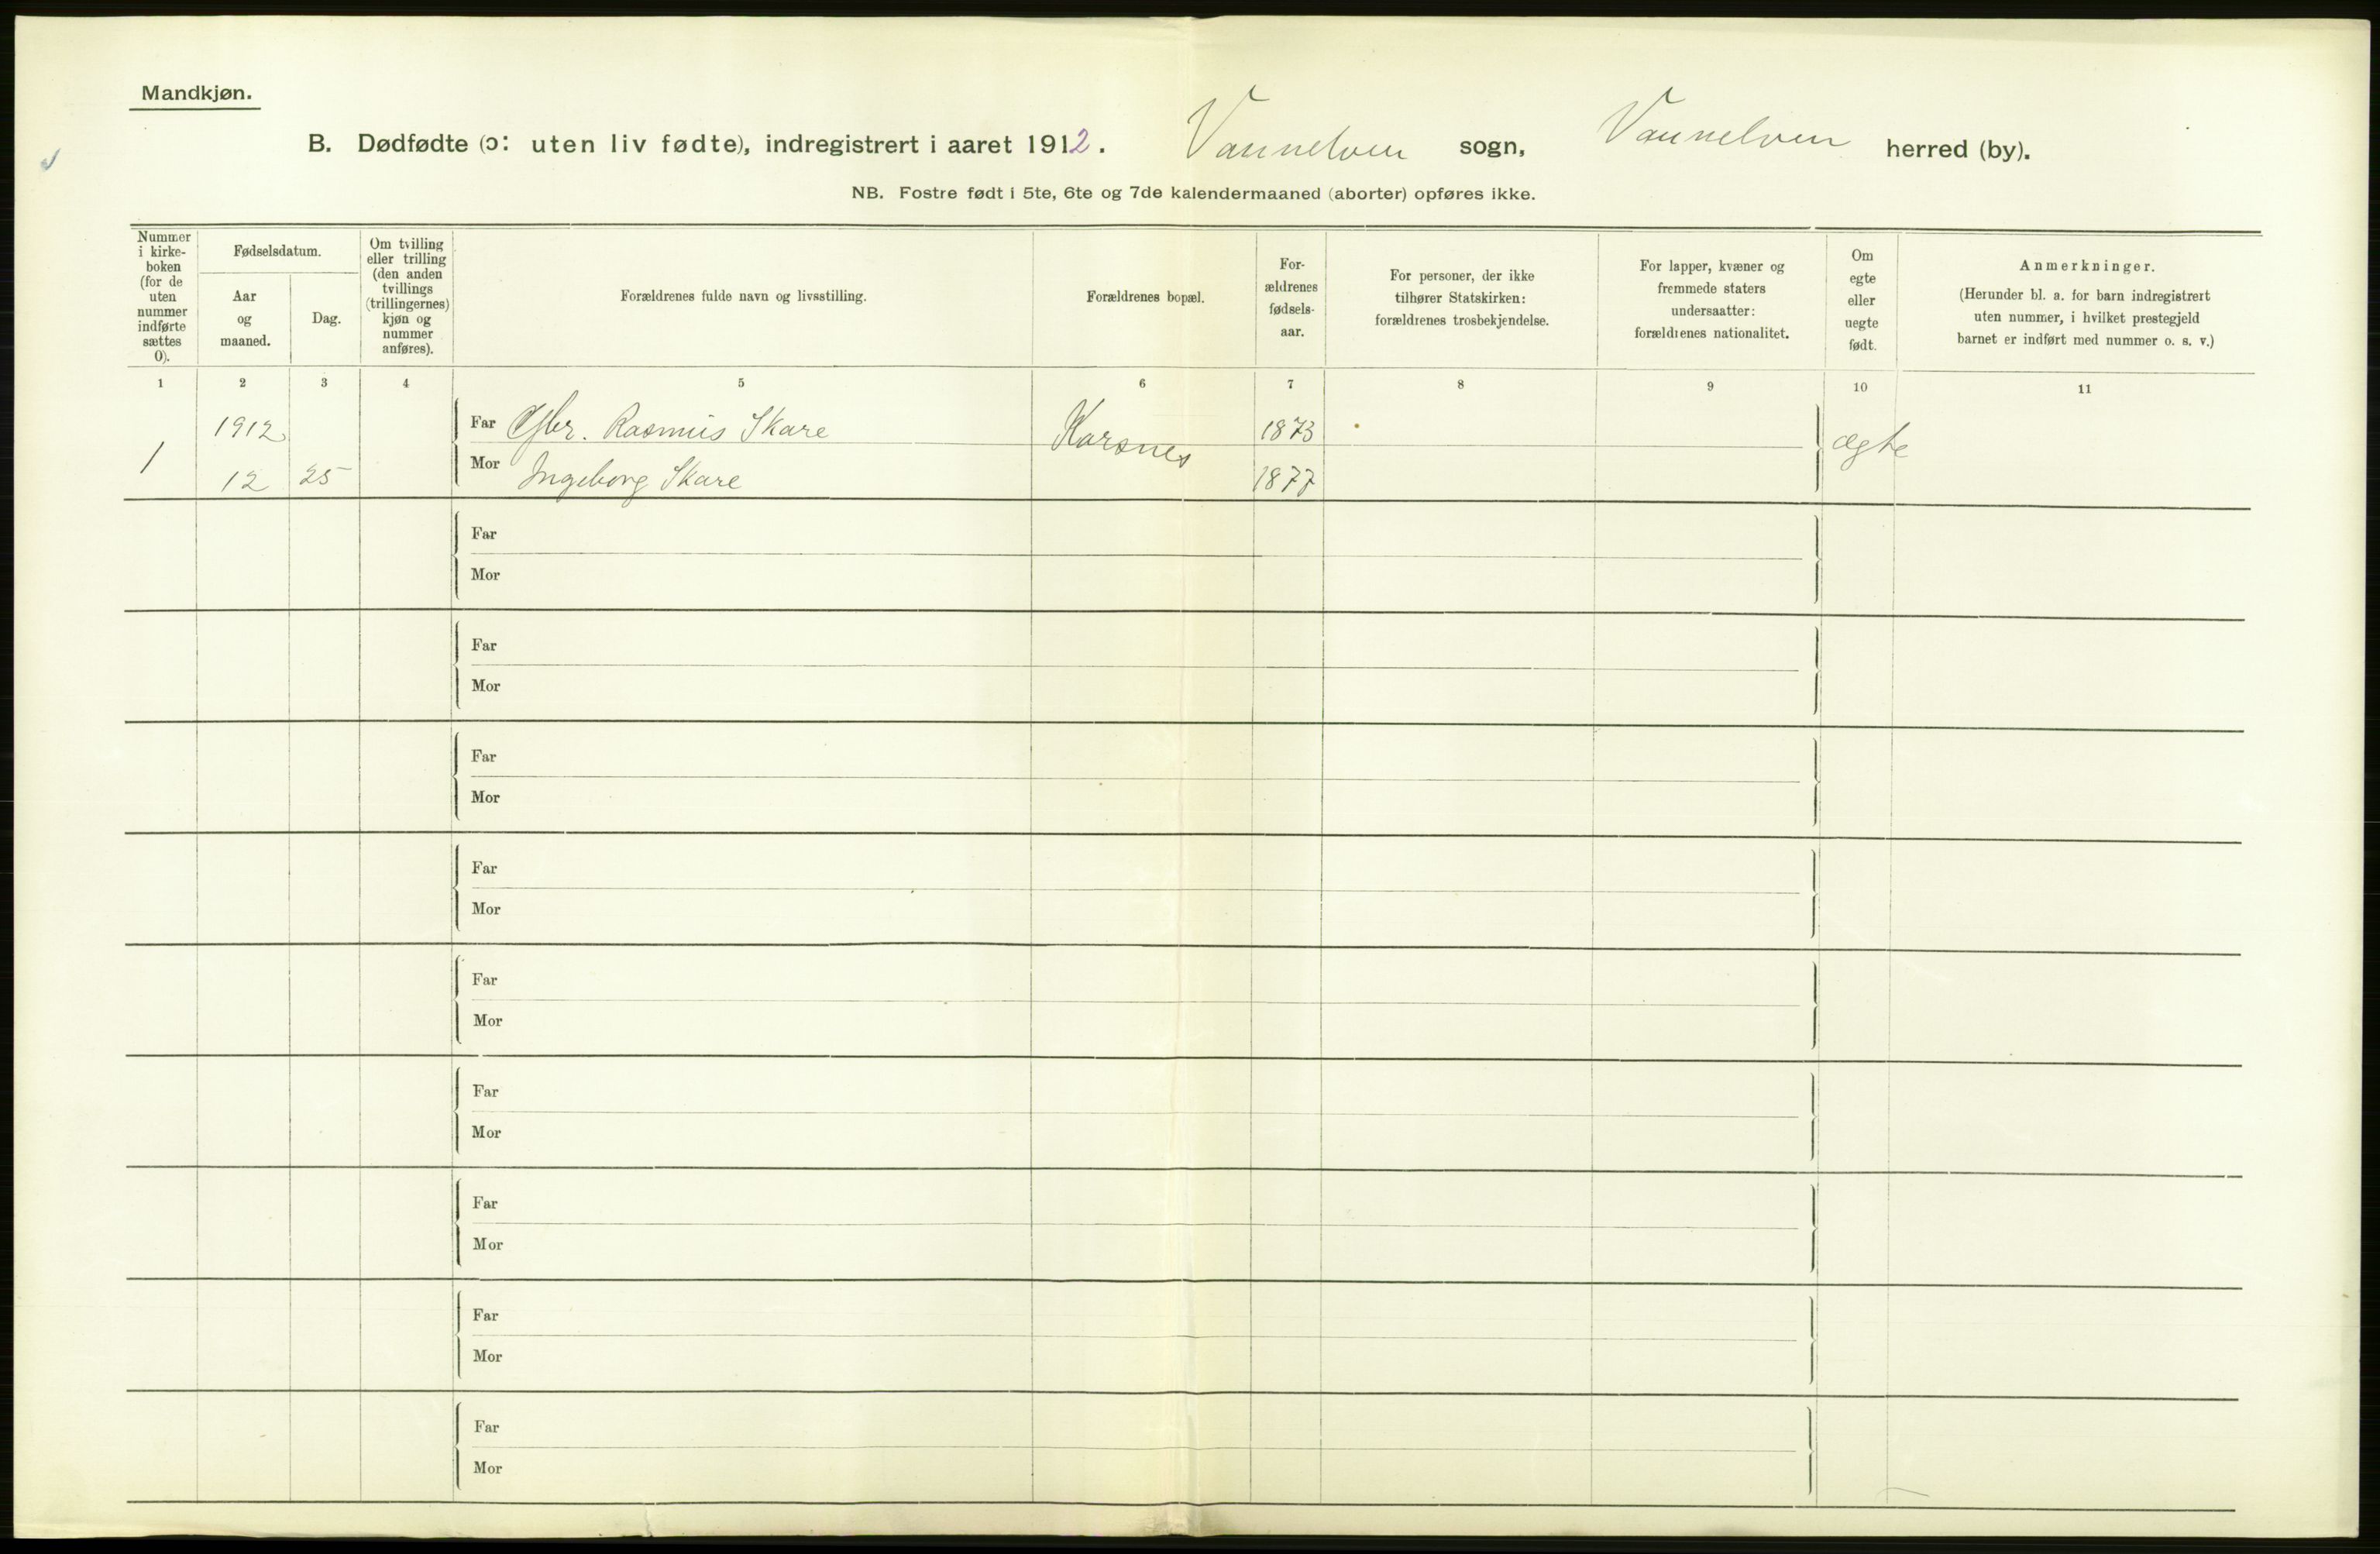 Mandkjøn.
B. Dødfødte (ɔ: uten liv fødte), indregistrert i aaret 1912. Vannelven sogn, Vannelven herred (by).
NB. Fostre født i 5te, 6te og 7de kalendermaaned (aborter) opføres ikke.
Nummer i kirke- boken (for de uten nummer indførte sættes 0).
Fødselsdatum.
Aar og maaned.
Dag.
Om tvilling eller trilling (den anden tvillings (trillingernes) kjøn og nummer anføres).
Forældrenes fulde navn og livsstilling.
Forældrenes bopæl.
For- ældrenes fødsels- aar.
For personer, der ikke tilhører Statskirken: forældrenes trosbekjendelse.
For lapper, kvæner og fremmede staters undersaatter: forældrenes nationalitet.
Om egte eller uegte født.
Anmerkninger.
(Herunder bl. a. for barn indregistrert uten nummer, i hvilket prestegjeld barnet er indført med nummer o. s. v.)
1 2 3 4 5 6 7 8 9 10 11
1912 Far Gbr. Rasmus Skare Karsnes 1873 ægte
1 12 25 Mor Ingeborg Skare 1877
Far
Mor
Far
Mor
Far
Mor
Far
Mor
Far
Mor
Far
Mor
Far
Mor
Far
Mor
Far
Mor